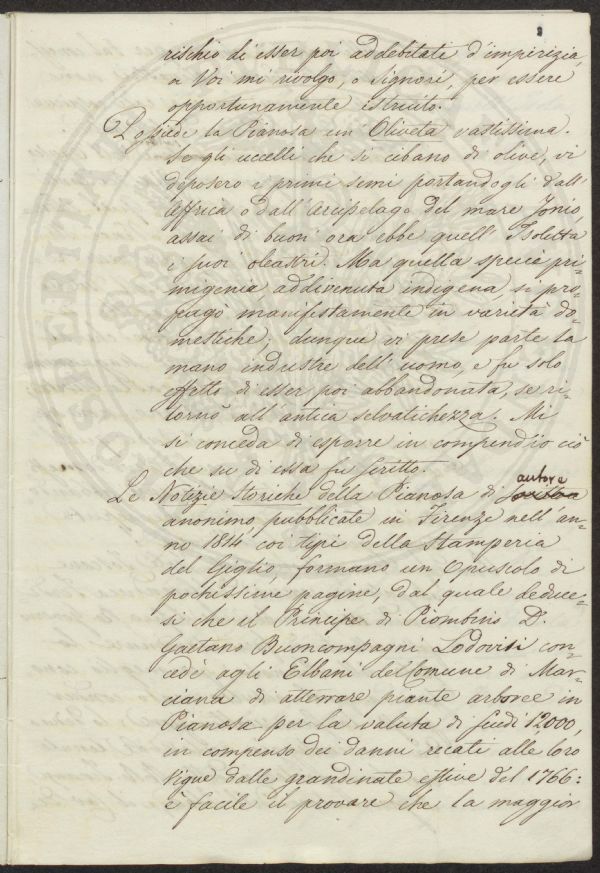 rischio di esser poi addebitate d'imperizia,
a Voi mi rivolgo, o Signori, per essere
opportunamente istruito.
Possiede la Pianosa un Oliveta vastissima.
Se gli uccelli che si cibano di olive, vi
deposero i primi semi portandogli dall'
Affrica o dall'Arcipelago del mare Jonio,
assai di buon'ora ebbe quell'Isoletta
i suoi oleastri. Ma quella specie pri=
migenia addivenuta indigena, si pro=
pagò manifestamente in varietà do=
mestiche; dunque vi prese parte la
mano industre dell'uomo, e fu solo
effetto di esser poi abbandonata, se ri=
tornò all'antica selvatichezza. Mi
si conceda di esporre in compendio ciò
che su di essa fu scritto.
Le Notizie storiche della Pianosa di autore
anonimo pubblicate in Firenze nell'an=
no 1814 coi tipi della Stamperia
del Giglio, formano un Opuscolo di
pochissime pagine, dal quale deduce=
si che il Principe di Piombino D.
Gaetano Buoncompagni Lodovisi con=
cedè agli Elbani del Comune di Mar=
ciana di atterrare piante arboree in
Pianosa per la valuta di Scudi 12,000,
in compenso dei danni recati alle loro
vigne dalle grandinate estive del 1766:
è facile il provare che la maggior